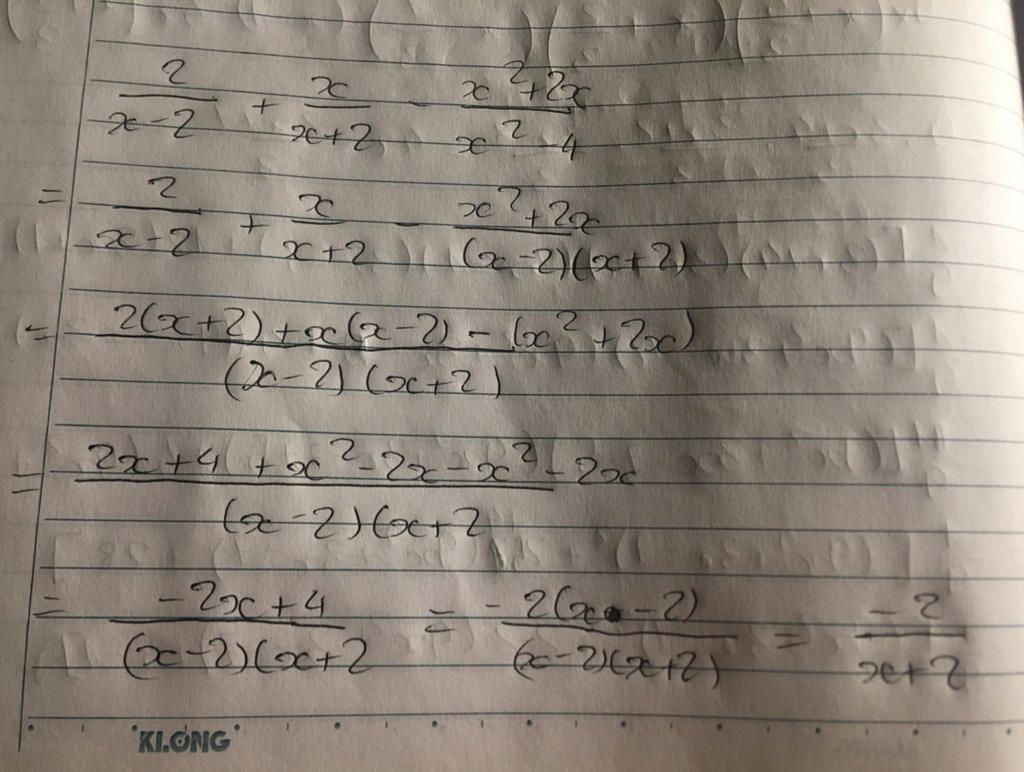 2/(x-2) + x/(x+2) - (x²+2x)/(x²-4)
= 2/(x-2) + x/(x+2) - (x²+2x)/((x-2)(x+2))
= (2(x+2)+x(x-2)-(x²+2x))/((x-2)(x+2))
= (2x+4+x²-2x-x²-2x)/((x-2)(x+2)
= (-2x+4)/((x-2)(x+2) = -2(x-2)/((x-2)(x+2)) = -2/(x+2)
KLONG